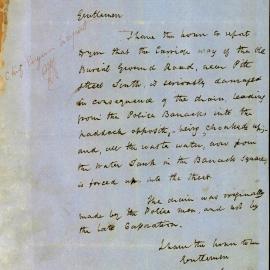 Gentlemen
I have the honor to report
to you that the Carriage way of the Old
Burial Ground Road, near Pitt
Street South, is seriously damaged
in consequence of the drain, leading
from the Police Barracks into the
paddock opposite, being choaked up,
and, all the waste water, now from
the water Tank in the Barrack Square,
is forced up into the Street.
The drain was originally
made by the Police men, and not by
the late Corporation.
I have the honor to be
Gentlemen